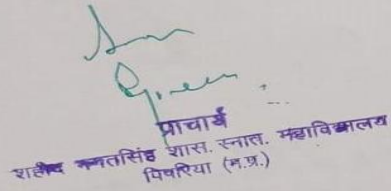 प्राचार्य
शहीद भगतसिंह शास. स्नात. महाविद्यालय
पिपरिया (म.प्र.)